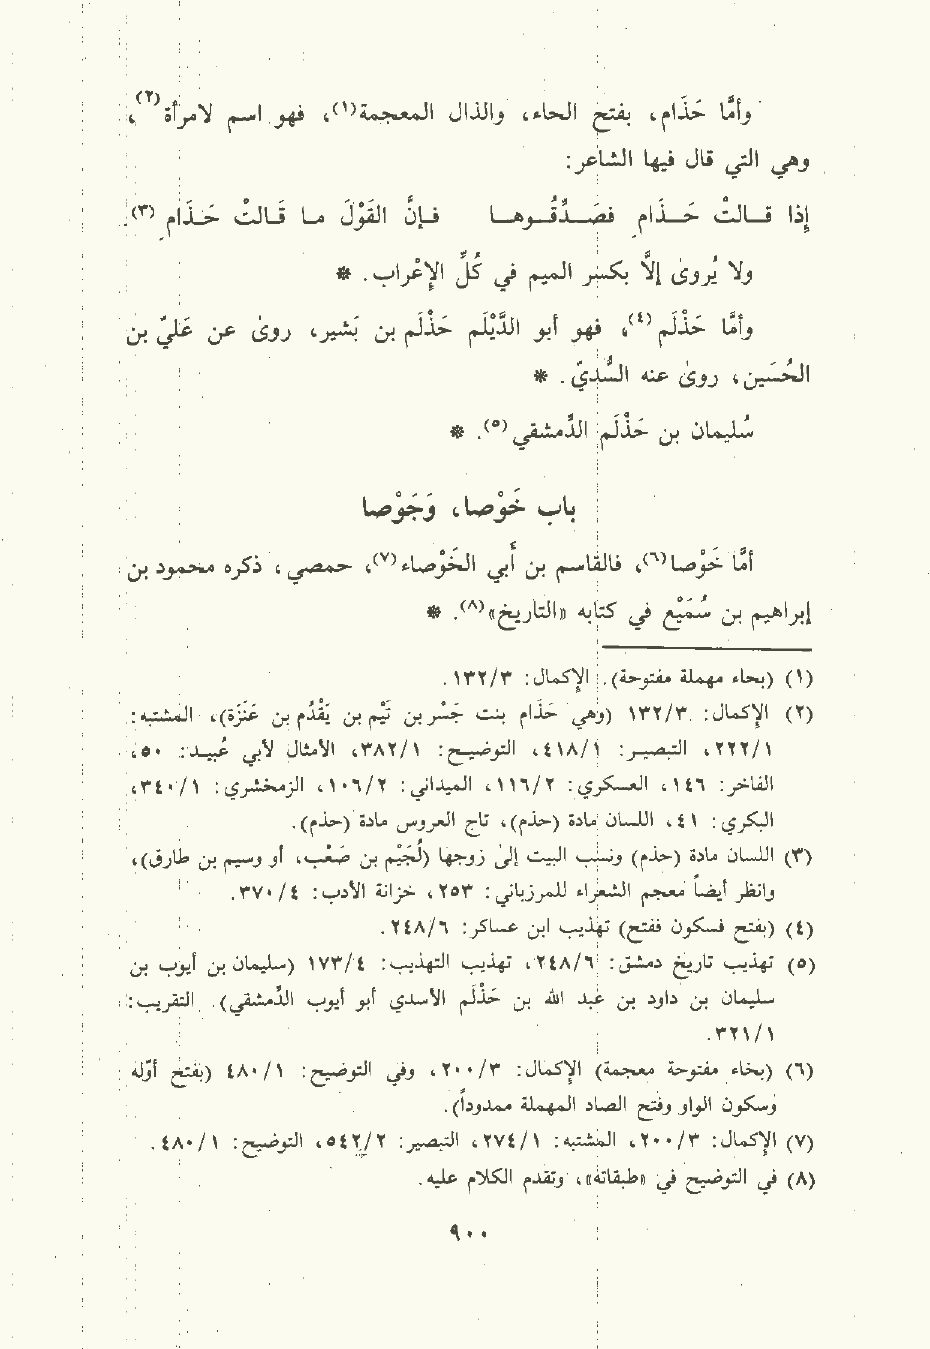 وأمَّا حَذَام، بفتح الحاء، والذال المعجمة(١)، فهو اسم لامرأة(٢)،
وهي التي قال فيها الشاعر:
إذا قـالتْ حَـذَامِ فصَـدِّقُـوهـا فـإنَّ القَوْلَ مـا قَـالتْ حَـذَامِ(٣).
ولا يُروىٰ إلَّا بكسر الميم في كُلِّ الإعْراب. *
وأمَّا حَذْلَم(٤)، فهو أبو الدَّيْلَم حَذْلَم بن بَشير، روىٰ عن عَليّ بن
الحُسَين، روىٰ عنه السُّديّ. *
سُليمان بن حَذْلَم الدِّمشقي(٥). *
باب خَوْصا، وَجَوْصا
أمَّا خَوْصا(٦)، فالقاسم بن أبي الخَوْصاء(٧)، حمصي، ذكره محمود بن
إبراهيم بن سُمَيْع في كتابه «التاريخ»(٨). *
(١) (بحاء مهملة مفتوحة). الإكمال: ١٣٢/٣.
(٢) الإكمال: ١٣٢/٣ (وهي حذام بنت جَسْر بن تَيْم بن يَقْدُم بن عَنَزَة)، المشتبه:
٢٢٢/١، التبصيـر: ٤١٨/١، التوضيـح: ٣٨٢/١، الأمثال لأبي عُبيـد: ٥٠،
الفاخر: ١٤٦، العسكري: ١١٦/٢، الميداني: ١٠٦/٢، الزمخشري: ٣٤٠/١،
البكري: ٤١، اللسان مادة (حذم)، تاج العروس مادة (حذم).
(٣) اللسان مادة (حذم) ونسب البيت إلى زوجها (لُجَيْم بن صَعْب، أو وسيم بن طارق)،
وانظر أيضاً معجم الشعراء للمرزباني: ٢٥٣، خزانة الأدب: ٣٧٠/٤.
(٤) (بفتح فسكون ففتح) تهذيب ابن عساكر: ٢٤٨/٦.
(٥) تهذيب تاريخ دمشق: ٢٤٨/٦، تهذيب التهذيب: ١٧٣/٤ (سليمان بن أيوب بن
سليمان بن داود بن عبد الله بن حَذْلَم الأسدي أبو أيوب الدِّمشقي). التقريب:
٣٢١/١.
(٦) (بخاء مفتوحة معجمة) الإكمال: ٢٠٠/٣، وفي التوضيح: ٤٨٠/١ (بفتح أوّله
وسكون الواو وفتح الصاد المهملة ممدوداً).
(٧) الإكمال: ٢٠٠/٣، المشتبه: ٢٧٤/١، التبصير: ٥٤٢/٢، التوضيح: ٤٨٠/١.
(٨) في التوضيح في «طبقاته»، وتقدم الكلام عليه.
٩٠٠